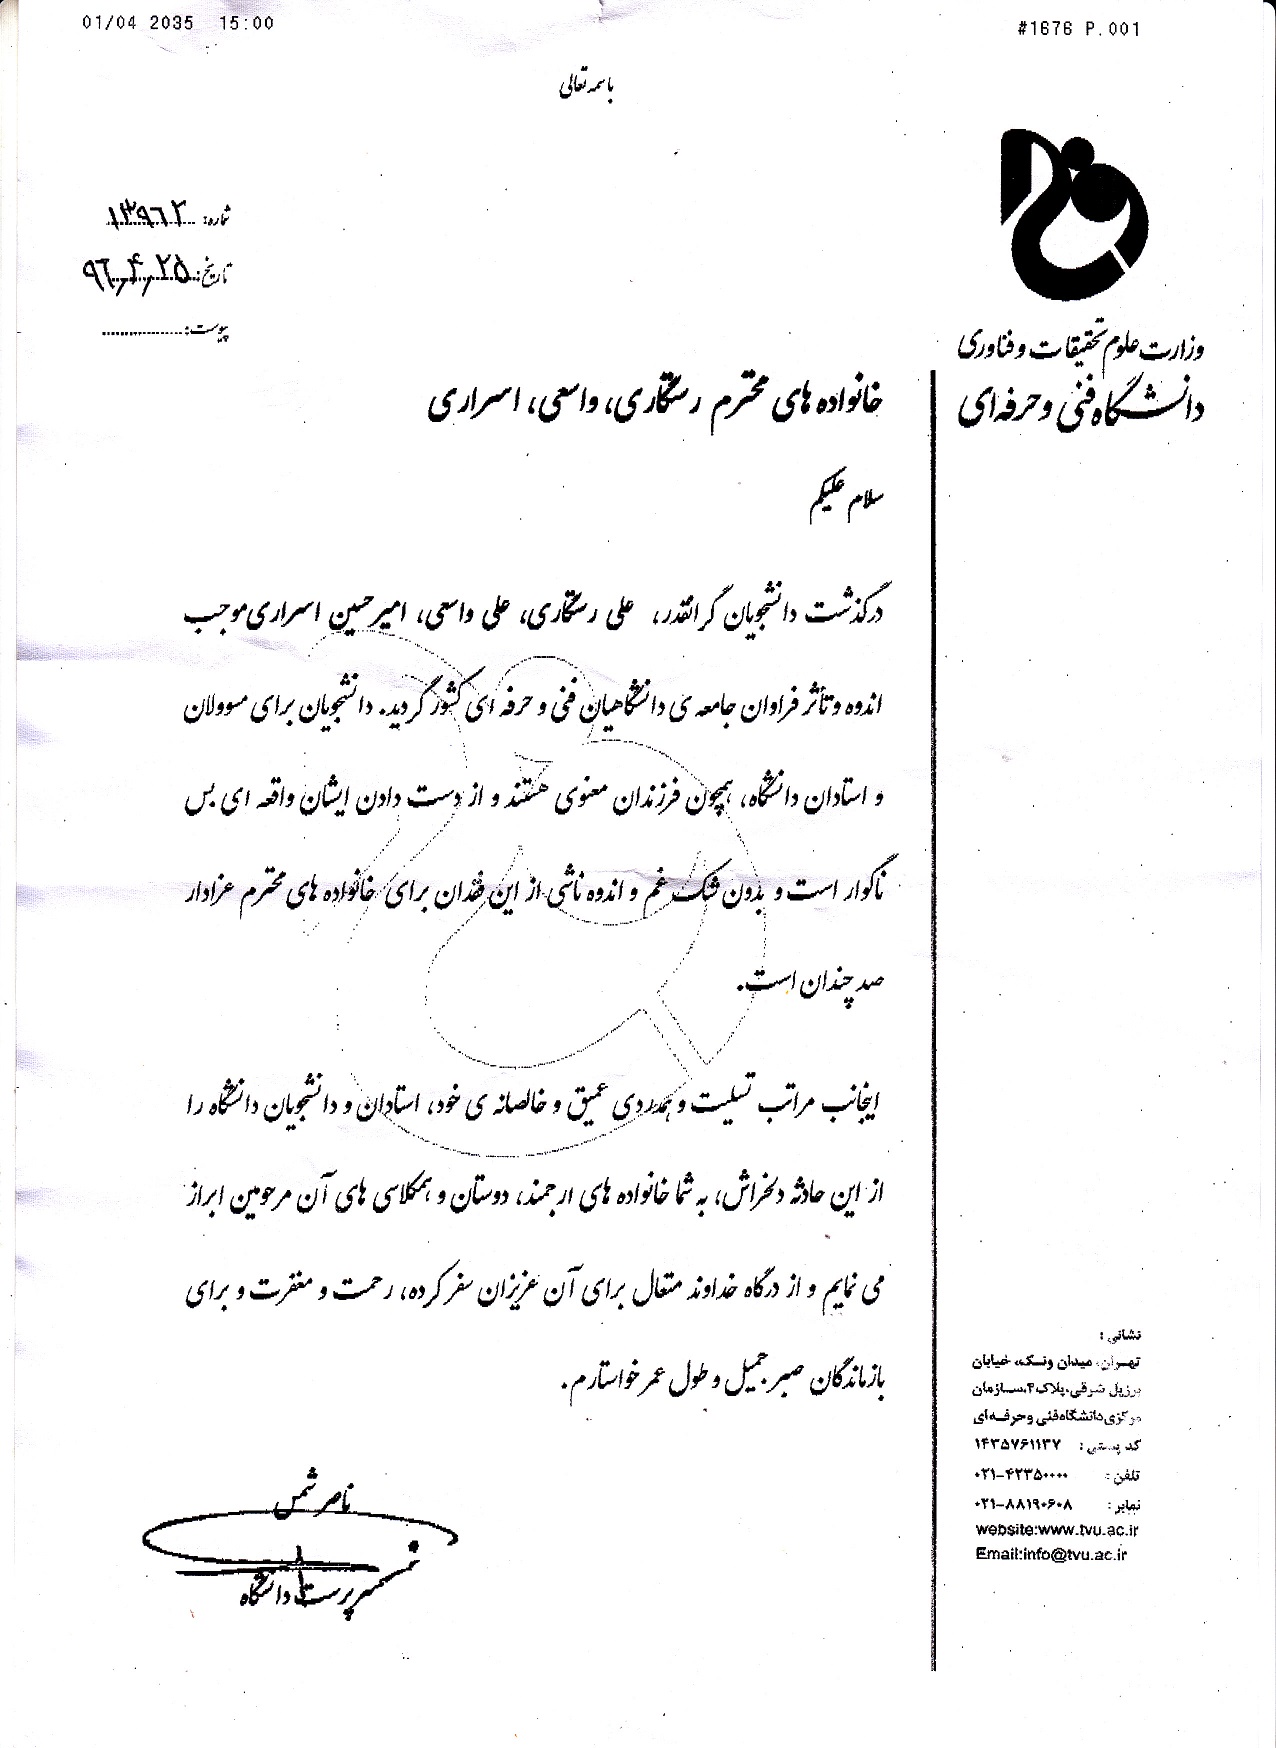 01/04 2035 15:00
#1676 P.001
باسمه تعالی
شماره: ۱۳۹۶۲
تاریخ: ۹۶,۴,۲۵
پیوست:
وزارت علوم تحقیقات و فناوری
دانشگاه فنی و حرفه ای
خانواده های محترم رستگاری، واسعی، اسراری
سلام علیکم
درگذشت دانشجویان گرانقدر، علی رستگاری، علی واسعی، امیرحسین اسراری موجب
اندوه و تأثر فراوان جامعه ی دانشگاهیان فنی و حرفه ای کشور گردید. دانشجویان برای مسوولان
و استادان دانشگاه، همچون فرزندان معنوی هستند و از دست دادن ایشان واقعه ای بس
ناگوار است و بدون شک غم و اندوه ناشی از این فقدان برای خانواده های محترم عزادار
صد چندان است.
اینجانب مراتب تسلیت و همدردی عمیق و خالصانه ی خود، استادان و دانشجویان دانشگاه را
از این حادثه دلخراش، به شما خانواده های ارجمند، دوستان و همکلاسی های آن مرحومین ابراز
می نمایم و از درگاه خداوند متعال برای آن عزیزان سفر کرده، رحمت و مغفرت و برای
بازماندگان صبر جمیل و طول عمر خواستارم.
ناصر شمس
سرپرست دانشگاه
نشانی :
تهران، میدان ونک، خیابان
برزیل شرقی، پلاک ۴، سازمان
مرکزی دانشگاه فنی و حرفه ای
کد پستی : ۱۴۳۵۷۶۱۱۳۷
تلفن : ۰۲۱-۴۲۳۵۰۰۰۰
نمابر : ۰۲۱-۸۸۱۹۰۶۰۸
website:www.tvu.ac.ir
Email:info@tvu.ac.ir